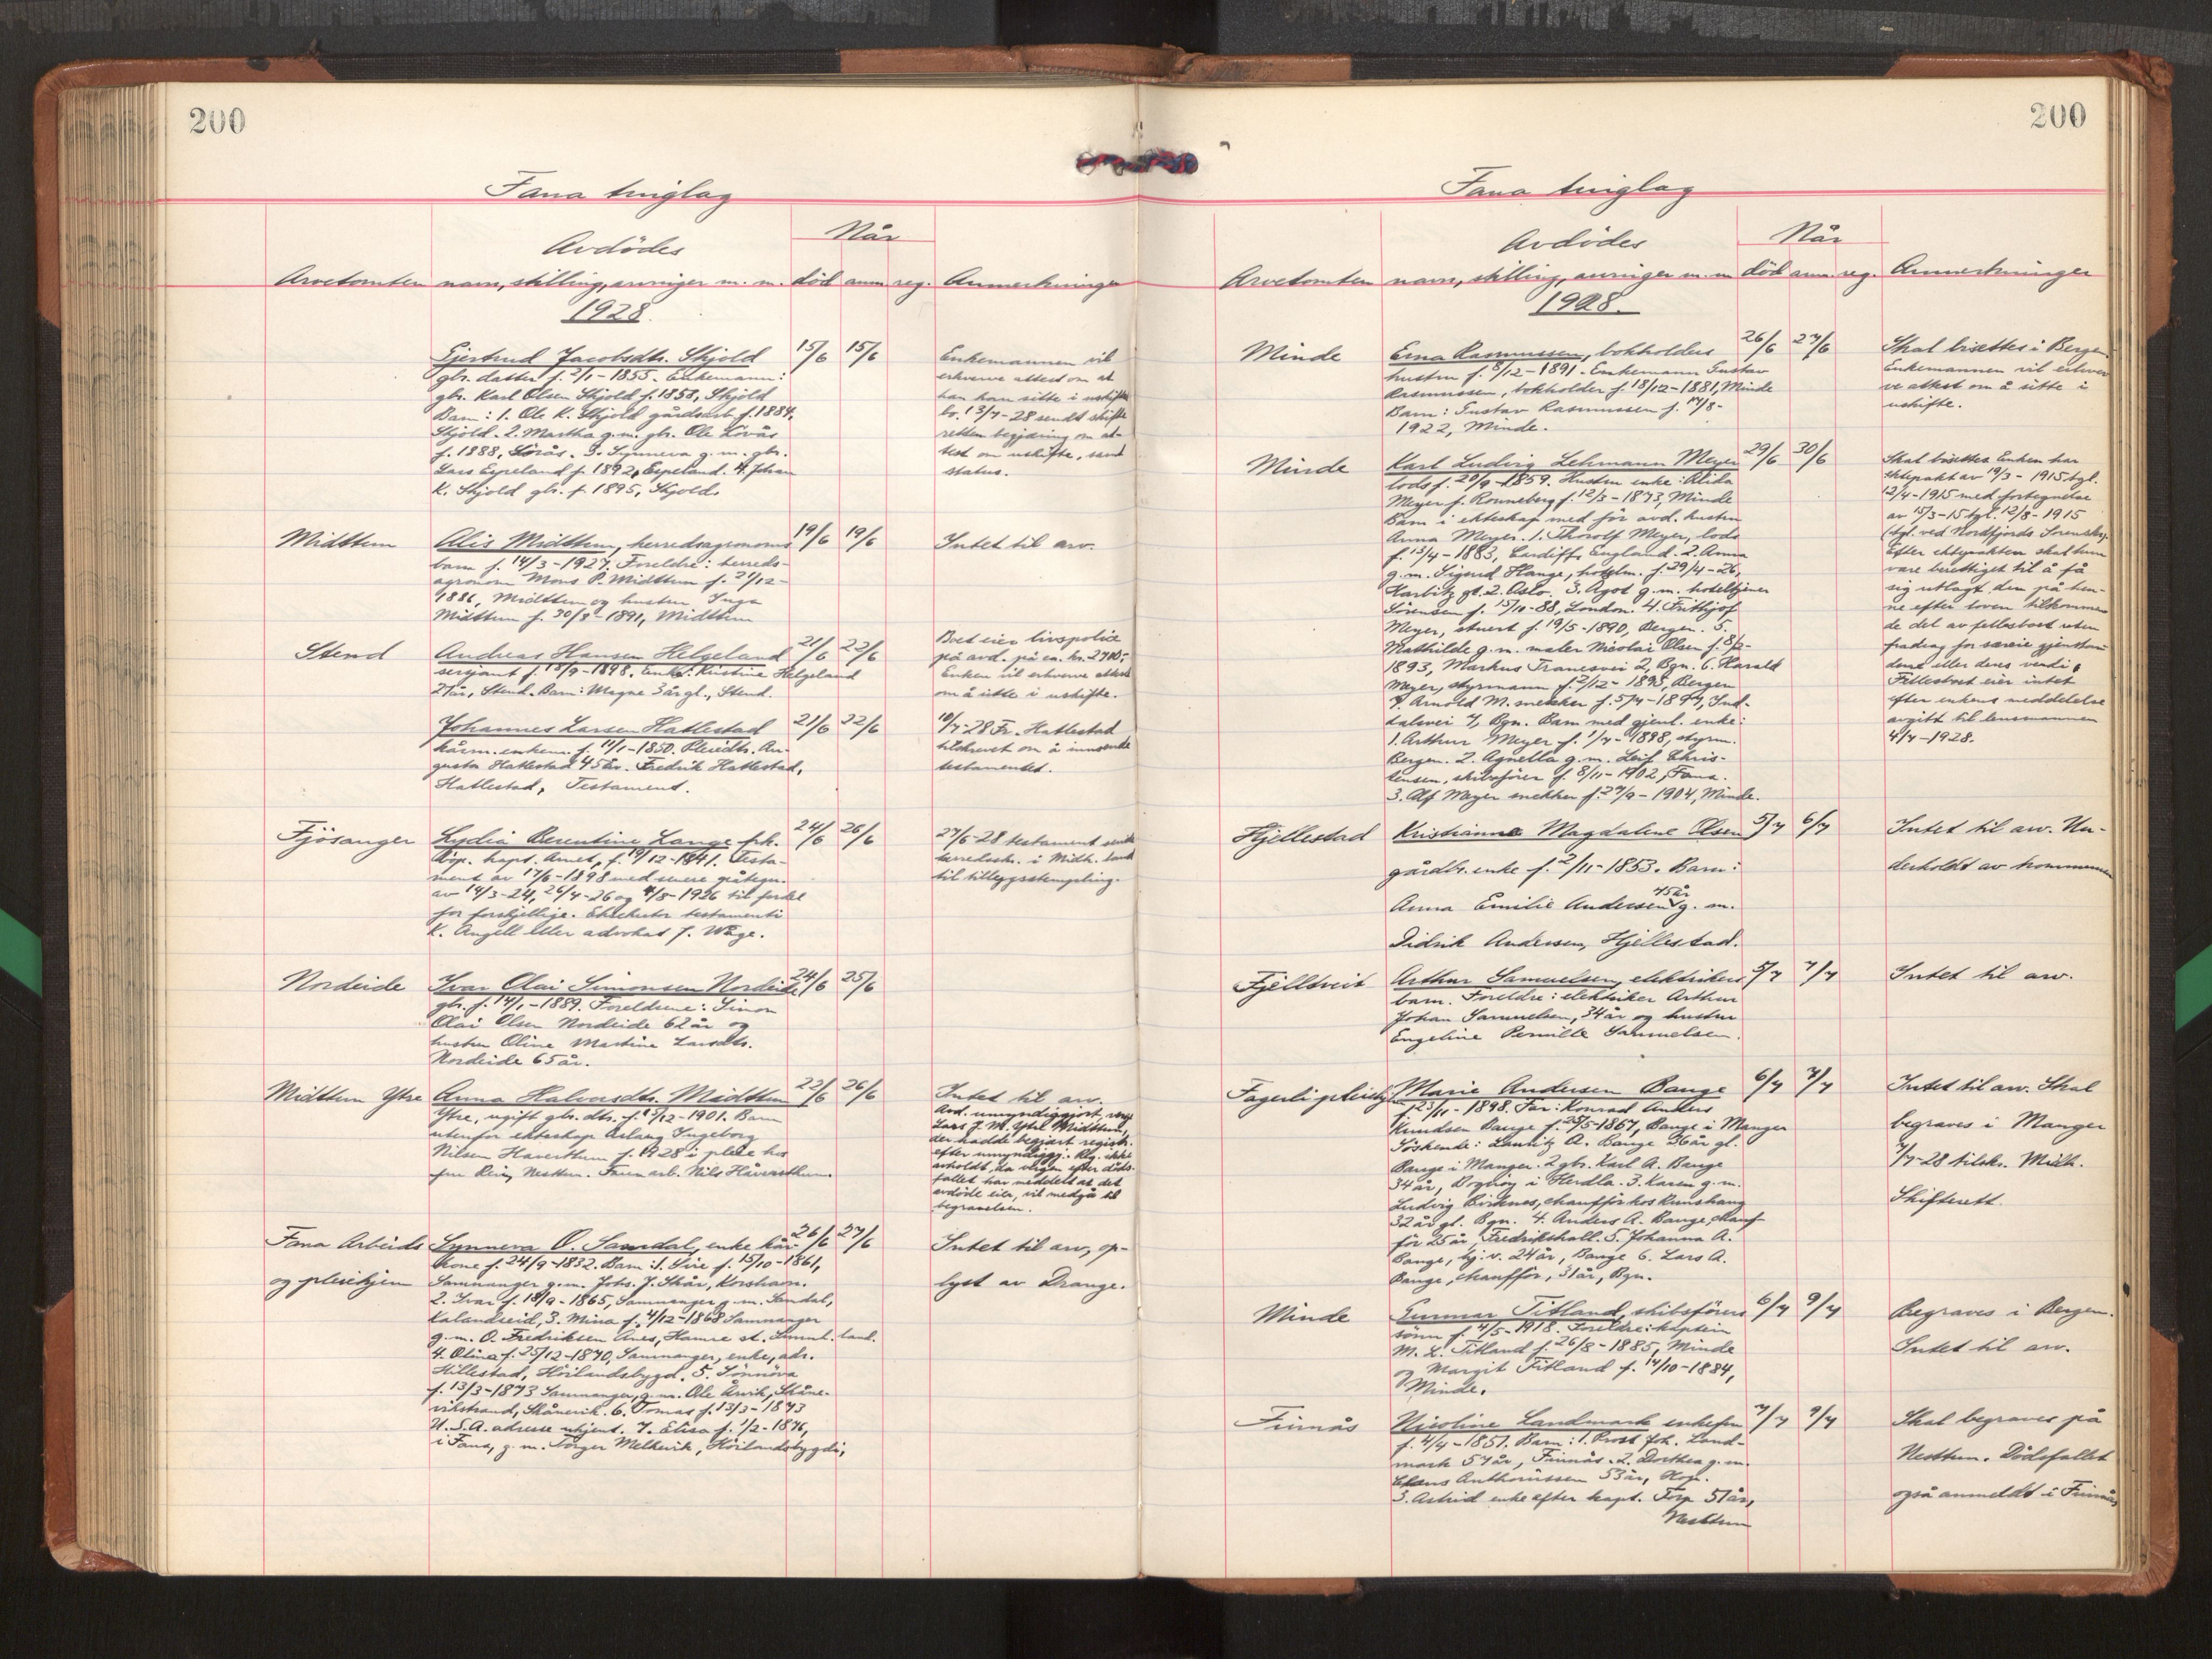 200
Fana tinglag
Når
Avdödes
Arvetomten navn, stilling, arvinger m. m. död anm. reg. Anmerkninger
1928.
Gjertrud Jacobsdtr. Skjold 15/6 15/6
gbr. datter f. 2/1 - 1855. Enkemann:
gbr. Karl Olsen Skjold f. 1858, Skjold
Barn: 1. Ole K. Skjold gårdsarb. f. 1884,
Skjold. 2. Martha g.m. gbr. Ole Lövås
f. 1888, Lövås. 3. Synneva g.m. gbr.
Lars Espeland f. 1892, Espeland. 4. Johan
K. Skjold gbr. f. 1895, Skjold.
Enkemannen vil
erhverve attest om at
han kan sitte i uskiftet
bo. 13/7 - 28 sendt skifte
retten begjæring om at-
test om uskifte, samt
status.
Midttun
Alis Midttun, herredsagronoms 19/6 19/6
barn f. 14/3 - 1927. Foreldre: herreds-
agronom Mons P. Midttun f. 27/12 -
1886, Midttun og hustru Inga
Midttun f. 30/3 - 1891, Midttun
Intet til arv.
Stend
Andreas Hansen Helgeland 21/6 22/6
sersjant f. 18/9 - 1898. Enke: Kristine Helgeland
27 år, Stend. Barn: Magne 3 år gl., Stend.
Boet eier livspolice
på avd. på ca. kr. 2700,-
Enken vil erhverve attest
om å sitte i uskifte.
Johannes Larsen Hatlestad 21/6 22/6
kårm. enkem. f. 11/1 - 1850. Pleiedtr. Au-
gusta Hatlestad 45 år. Fredrik Hatlestad,
Hatlestad, Testament.
10/7 - 28 Fr. Hatlestad
tilskrevet om å innsende
testamentet.
Fjösanger
Lydia Berentine Lange frk. 24/6 26/6
Kop. kapt. Arnet, f. 19/12 - 1841. Testa-
ment av 17/6 - 1898 med senere påtegn.
av 14/3 - 24, 26/4 - 26 og 4/8 - 1926 til fordel
for forskjellige. Eksekutor testamenti
K. Angell eller advokat J. Wåge.
27/6 - 28 testament sendt
herredsskr. i Midth. land
til tilleggsstempling.
Nordeide
Ivar Olai Simonsen Nordeide 24/6 25/6
gbr. f. 14/1 - 1889. Foreldrene: Simon
Olai Olsen Nordeide 62 år og
hustru Oline Martine Larsdtr.
Nordeide 65 år.
Midttun Ytre
Anna Halvorsdtr. Midttun 22/6 26/6
Ytre, ugift gbr. dtr. f. 15/12 - 1901. Barn
utenfor ekteskap Aslaug Ingeborg
Nilsen Haverthun f. 1928 i pleie hos
fru Rein, Nesttun. Faren arb. Nils Håvardthun.
Intet til arv.
Avd. umyndiggjort, verge
Lars J. M. Ytre Midttun,
der hadde begjært registr.
efter umyndiggj. Rg. ikke
avholdt, da vergen efter döds-
fallet har meddelt at det
avdöde eier, vil medgå til
begravelsen.
Fana Arbeids
og pleiehjem
Synneva O. Samdal, enke kår- 26/6 27/6
kone f. 24/9 - 1832. Barn: 1. Sire f. 15/10 - 1861,
Samnanger g.m. Johs. J. Skår, Korshavn.
2. Ivar f. 18/9 - 1865, Samnanger g.m. Samdal,
Kalandseid, 3. Mina f. 4/12 - 1868 Samnanger
g.m. O. Fredriksen Ånes, Hamre st. land.
4. Olina f. 25/12 - 1870, Samnanger, enke, adr.
Hillestad, Höilandsbygd. 5. Sönnöva
f. 13/3 - 1873 Samnanger, g.m. Ole Årvik, Skåne-
vikstrand, Skånevik. 6. Tomas f. 13/3 - 1873
U.S.A. adresse ukjent. 7. Elisa f. 1/2 - 1876,
i Fana, g.m. Törger Melkevik, Höilandsbygd.
Intet til arv, op-
lyst av Drange.
200
Fana tinglag
Når
Avdödes
Arvetomten navn, stilling, arvinger m. m. död anm. reg. Anmerkninger
1928.
Minde
Erna Rasmussen, bokholders 26/6 27/6
hustru f. 8/12 - 1891. Enkemann Gustav
Rasmussen, bokholder f. 18/12 - 1881, Minde
Barn: Gustav Rasmussen f. 14/8 -
1922, Minde.
Skal bisettes i Bergen.
Enkemannen vil erhver
ve attest om å sitte i
uskifte.
Minde
Karl Ludvig Lehmann Meyer 29/6 30/6
lods f. 20/9 - 1859. Hustru enke: Alida
Meyer f. Ronneberg f. 12/3 - 1873, Minde
Barn i ekteskap med för avd. hustru
Anna Meyer. 1. Thorolf Meyer, lods
f. 13/4 - 1883, Cardiff, England. 2. Anna
g.m. Sigurd Hauge, hotelm. f. 29/4 - 26,
Karbitz gt. 2. Oslo. 3. Agot g.m. hoteltjener
Sörensen f. 15/10 - 88, London. 4. Frithjof
Meyer, stuert f. 19/5 - 1890, Bergen. 5.
Mathilde g.m. maler Nicolai Olsen f. 8/2 -
1893, Markus Tranesvei 2, Bgn. 6. Harald
Meyer, styrmann f. 2/12 - 1895, Bergen
7. Arnold M. snekker f. 5/4 - 1897, Ind-
dalsvei 7, Bgn. Barn med gjenl. enke:
1. Arthur Meyer f. 1/7 - 1898, styrm.
Bergen. 2. Agnella g.m. Leif Chris-
tensen, skibsförer f. 8/11 - 1902, Fana.
3. Alf Meyer snekker f. 27/9 - 1904, Minde.
Skal bisettes. Enken har
ektepakt av 19/3 - 1915 tgl.
12/4 - 1915 med fortegnelse
av 15/3 - 15 tgl. 12/8 - 1915
(tgl. ved Nordfjords Sorenskr.
Efter ektepakten skal hun
være berettiget til å få
sig utlagt den på hen-
ne efter loven tilkommen
de del av fellesboet uten
fradrag for særeie gjenstan-
dene eller deres verdi.
Fellesboet eier intet
efter enkens meddelelse
avgitt til lensmannen
4/7 - 1928.
Hjellestad
Kristianna Magdalene Olsen 5/7 6/7
gårdbr. enke f. 2/11 - 1853. Barn:
45 år
Anna Emilie Andersen g. m.
Didrik Andersen, Hjellestad.
Intet til arv. Un-
derholdt av kommunen
Fjelltveit
Arthur Samuelsen, elektrikers 5/7 7/7
barn. Foreldre: elektriker Arthur
Johan Samuelsen, 34 år og hustru
Engeline Pernille Samuelsen.
Intet til arv.
Fagerli pleiehjem
Marie Andersen Bauge 6/7 7/7
f. 23/11 - 1898. Far: Konrad Anders
Knudsen Bauge f. 25/5 - 1867, Bauge i Manger
Söskende: Lauritz A. Bauge 36 år gl.
Bauge i Manger. 2 gbr. Karl A. Bauge
34 år, i Herdla. 3. Karen g.m.
Ludvig Birknes, chauffför hos
32 år gl. Bgn. 4. Anders A. Bauge, chauf-
för 25 år, Fredrikshall. 5. Johanna A.
Bauge, hj. v. 24 år, Bauge 6. Lars A.
Bauge, chauffför, 31 år, Bgn.
Intet til arv. Skal
begraves i Manger
9/7 - 28 tilskr. Midh.
Skifterett.
Minde
Gunnar Titland, skibsförers 6/7 9/7
sönn f. 4/5 - 1918. Foreldre: kaptein
M. L. Titland f. 26/8 - 1885, Minde
og Margit Titland f. 14/10 - 1884,
Minde.
Begraves i Bergen.
Intet til arv.
Finnås
Nicoline Landmark enkefru 7/7 9/7
f. 4/4 - 1851. Barn: 1. Prost Joh. Land-
mark 57 år, Finnås. 2. Dorthea g.m.
Claus Anthonissen 53 år, Hop.
3. Astrid enke efter kapt. Torp 51 år,
Nesttun
Skal begraves på
Nesttun. Dödsfallet
også anmeldt i Finnås